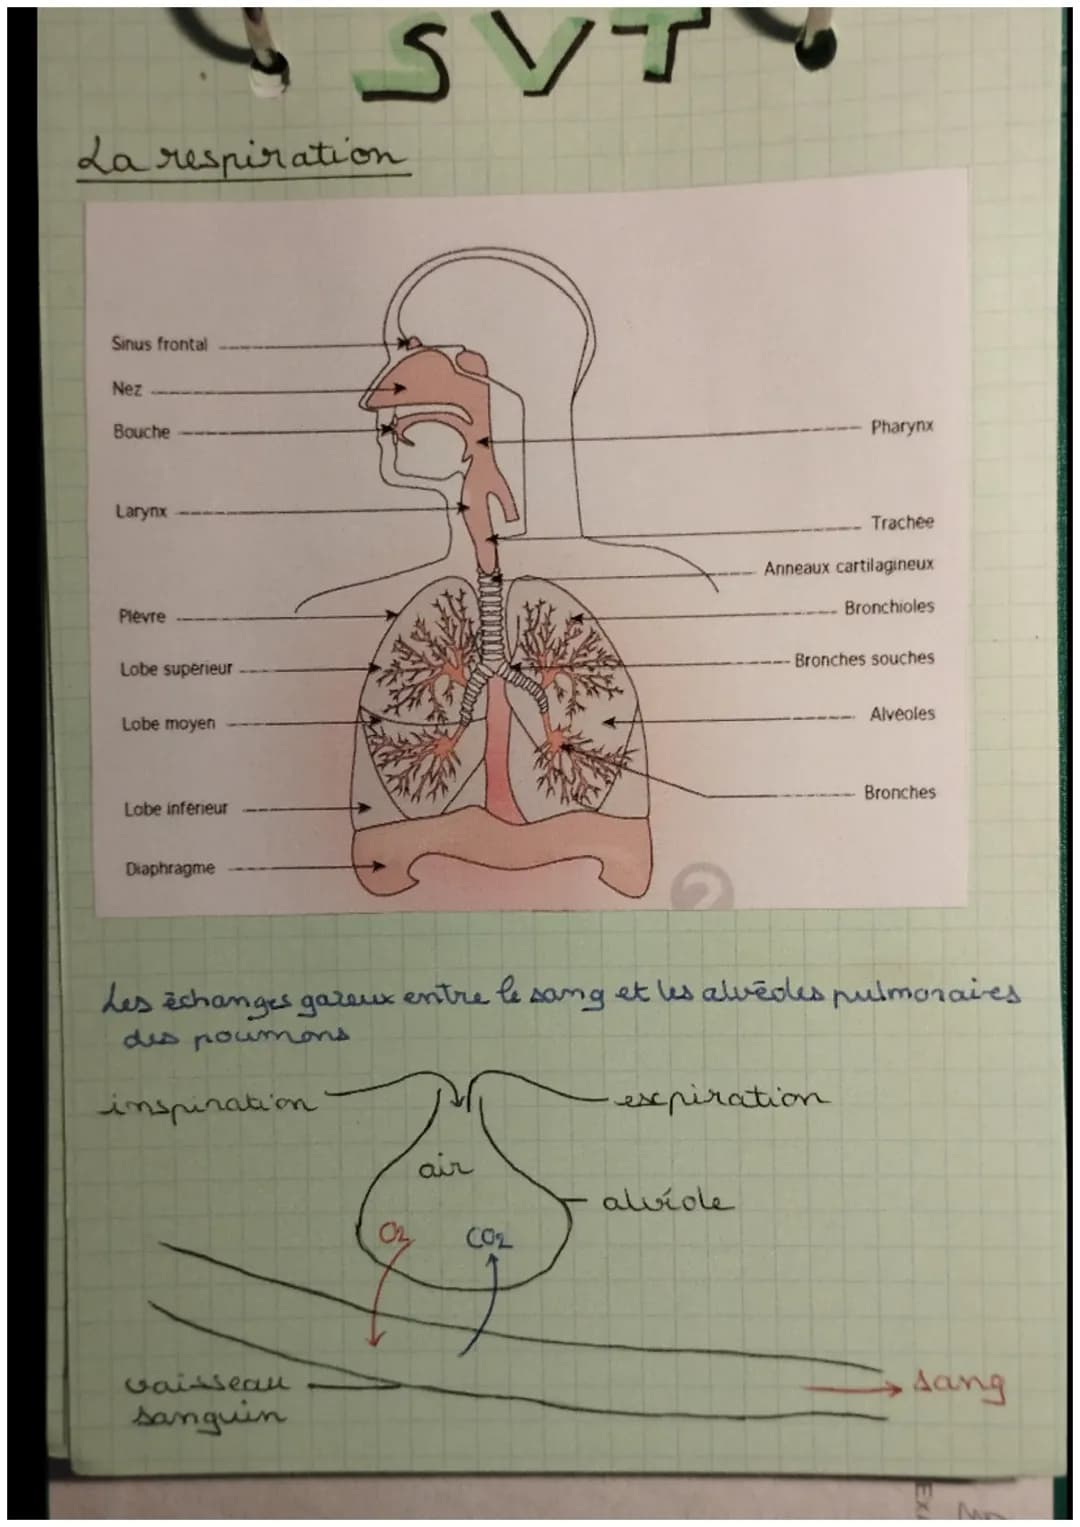 SVT
La respiration
Sinus frontal
Nez
Bouche
Pharynx
Larynx
Trachée
Anneaux cartilagineux
Plèvre
Bronchioles
Lobe supérieur
Bronches souches
Lobe moyen
Alvéoles
Lobe inférieur
Bronches
Diaphragme
?
Les échanges gazeux entre le sang et les alvéoles pulmonaires
des poumons
inspiration
expiration
air
alvéole
O2
CO2
vaisseau
sanguin
sang